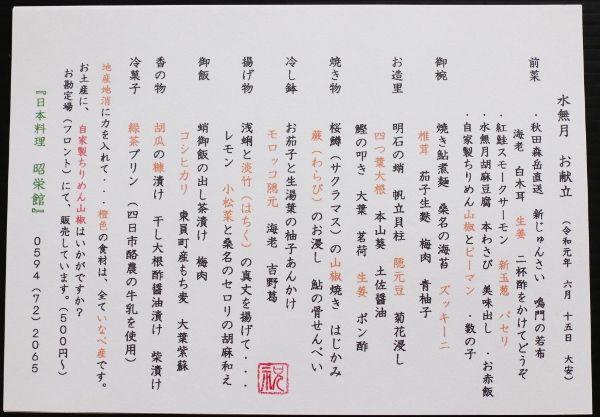 水無月 お献立 (令和元年 六月 十五日 大安)
前菜 ・秋田森岳直送 新じゅんさい 鳴門の若布
海老 白木耳 生姜 二杯酢をかけてどうぞ
・紅鮭スモークサーモン 新玉葱 パセリ
・水無月胡麻豆腐 本わさび 美味出し ・お赤飯
・自家製ちりめん山椒とピーマン ・数の子
御椀 焼き鮎煮麺 桑名の海苔 ズッキーニ
椎茸 茄子生麩 梅肉 青柚子
お造里 明石の蛸 帆立貝柱 隠元豆 菊花浸し
四つ葉大根 本山葵 土佐醤油
鰹の叩き 大葉 茗荷 生姜 ポン酢
焼き物 桜鱒(サクラマス)の山椒焼き はじかみ
蕨(わらび)のお浸し 鮎の骨せんべい
冷し鉢 お茄子と生湯葉の柚子あんかけ
モロッコ隠元 海老 吉野葛
揚げ物 浅蜊と淡竹(はちく)の真丈を揚げて・・・
レモン 小松菜と桑名のセロリの胡麻和え
御飯 蛸御飯の出し茶漬け 梅肉
コシヒカリ 東員町産もち麦 大葉紫蘇
香の物 胡瓜の糠漬け 干し大根酢醤油漬け 柴漬け
冷菓子 緑茶プリン (四日市酪農の牛乳を使用)
地産地消に力を入れて・・・橙色の食材は、全ていなべ産です。
お土産に、自家製ちりめん山椒はいかがですか?
お勘定場(フロント)にて、販売しています。(500円〜)
『日本料理 昭栄館』 0594(72)2065
祝